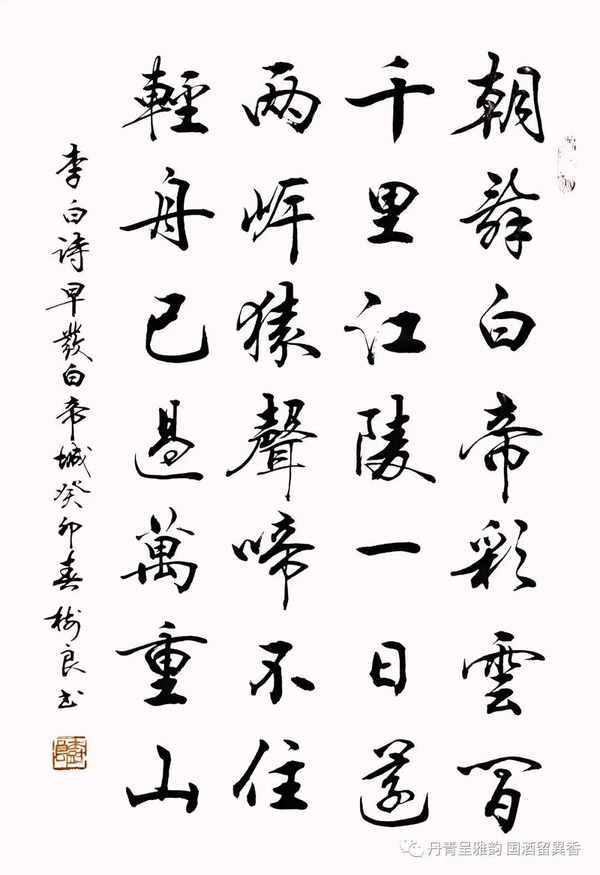 朝辞白帝彩雲間
千里江陵一日還
两岸猿聲啼不住
輕舟已過萬重山
李白诗早發白帝城癸卯春树良书
丹青呈雅韵 国酒留異香